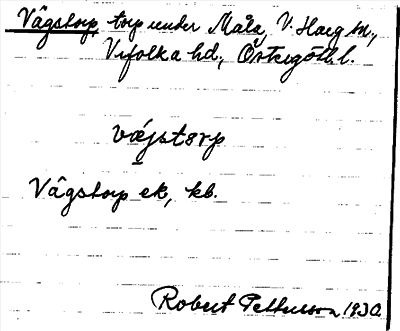 Vâgstorp, torp under Måla, V. Harg sn.,
Vifolka hd., Östergötl. l.
vǽjstɔrp
Vâgstorp ek, kb.
Robert Pettersson 1930